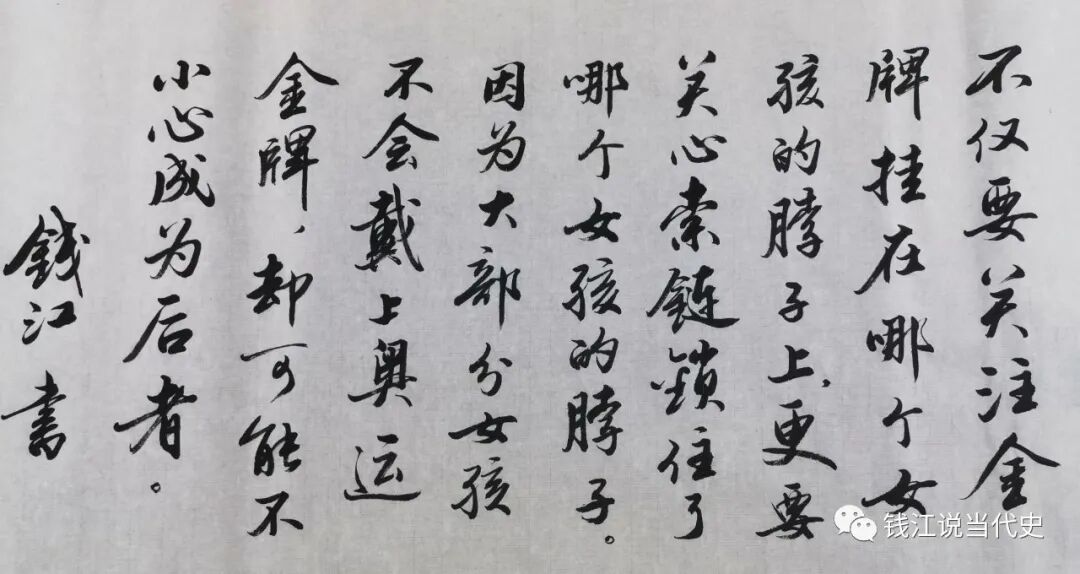 不仅要关注金
牌挂在哪个女
孩的脖子上，更要
关心索鏈鎖住了
哪个女孩的脖子。
因为大部分女孩
不会戴上奥运
金牌，却可能不
小心成为后者。
錢江書
钱江说当代史